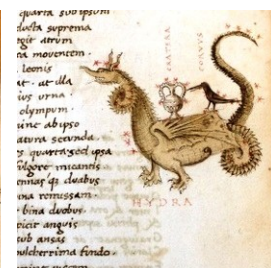 quarta sub ipsum
ducta suprema
git atrum
ra moventem.
. leonis
at. at illa
ius urna
olympum.
inc ab ipso
atura secunda.
s quarta: sed ipsa
ulgore micantis
ennas q; duabus
ina remissam.
. bina duobus.
picit anguis
sub ansas
pulcherrima fundo.
CRATERA
CORVVS
HYDRA